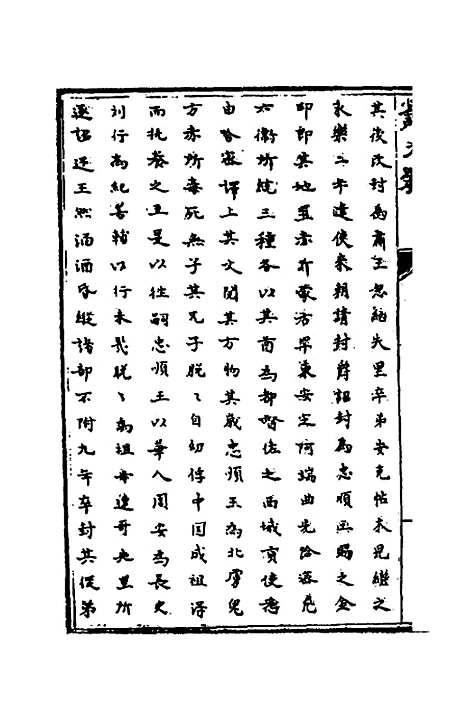 其後改封為肅王忽納失里卒弟安克帖木兒繼之
永樂二年遣使來朝請封爵詔封為忠順王賜之金
印即其地置赤斤蒙古罕東安定阿端曲先哈密凡
六衛所統三種各以其酋為都督佐之西域貢使悉
由哈密譯上其文閱其方物其歲忠順王為北虜鬼
力赤所毒死無子其兄子脫〻自幼俘中国成祖得
而托養之至是以往嗣忠順王以華人周安為長史
刘行為紀善輔以行未幾脫〻為祖母速哥失里所
逐詔还王然酒酒昏縱諸部不附九年卒封其從弟